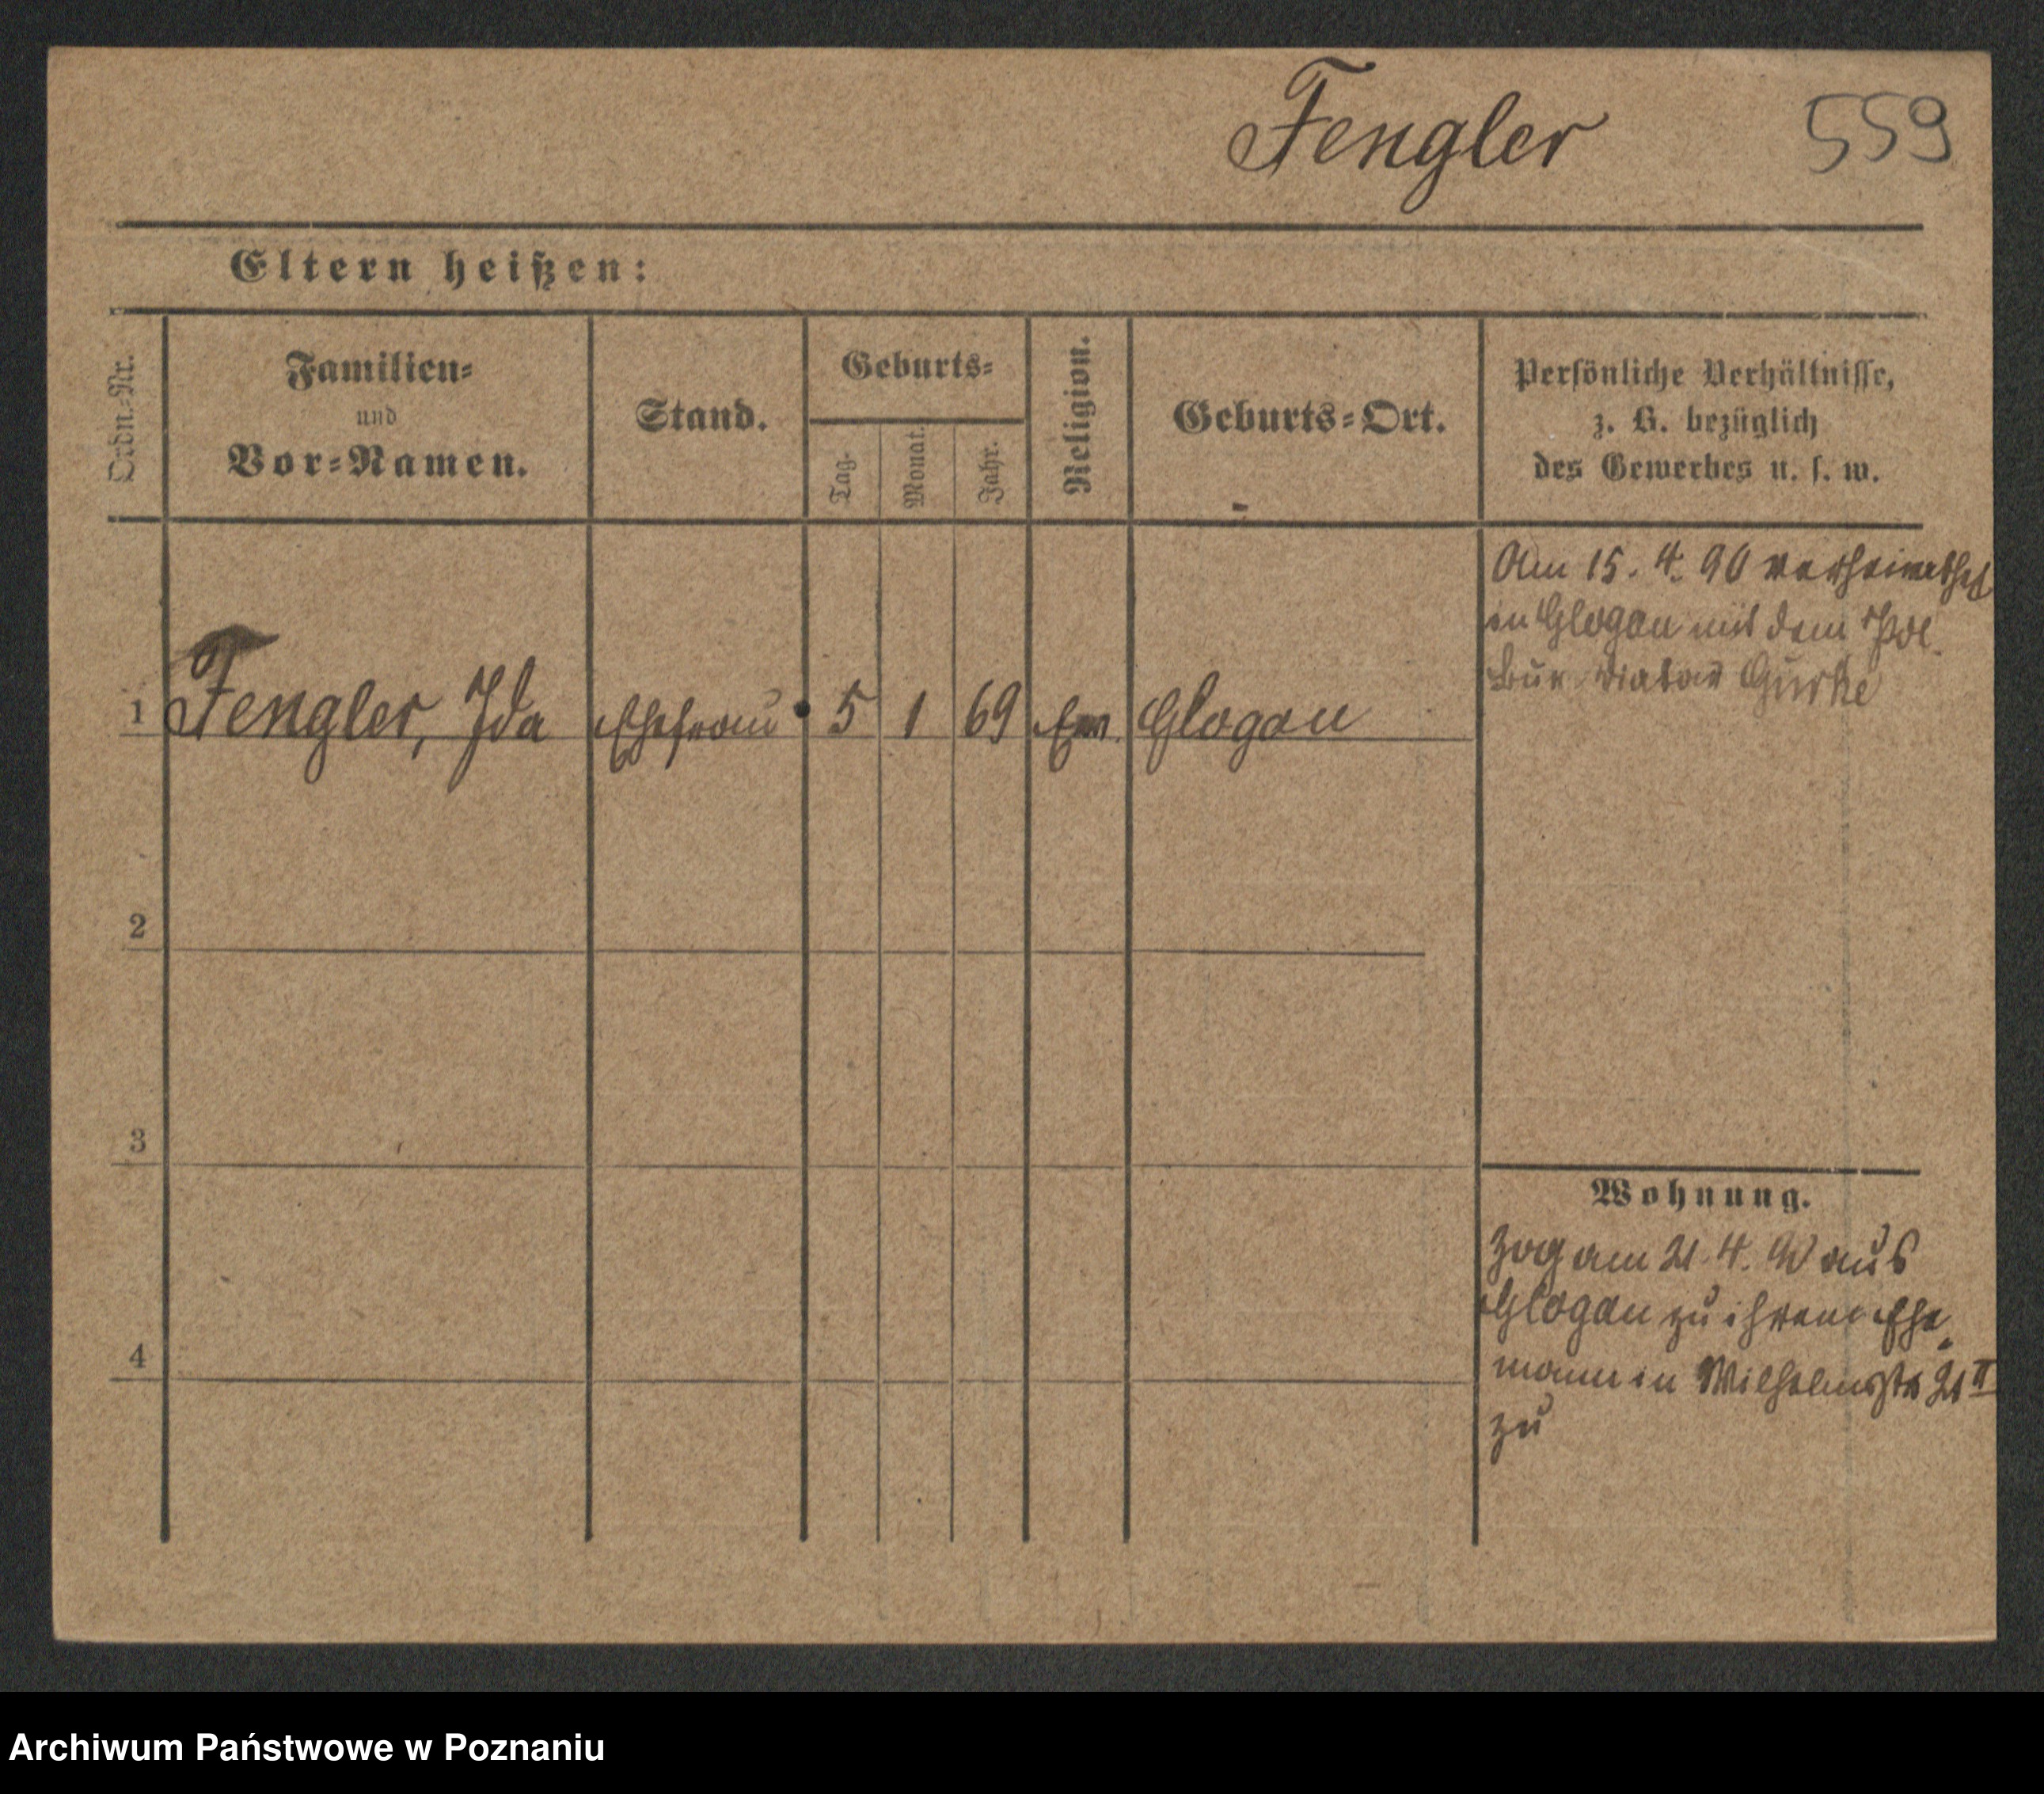 Fengler
559
Eltern heißen:
Ordn.-Nr.
Familien-
und
Vor-Namen.
Stand.
Geburts-
Tag.
Monat.
Jahr.
Religion.
Geburts-Ort.
Persönliche Verhältnisse,
z. B. bezüglich
des Gewerbes u. s. w.
1 Fengler, Ida Ehefrau 5 1 69 Ev. Glogau
Am 15. 4. 90 verheirathet
in Glogau mit dem Pol.
Bur. Diätar Gurke
2
3
4
Wohnung.
Zog am 21. 4. 90 aus
Glogau zu ihrem Ehe-
mann in Wilhelmstr 21 II
zu
Archiwum Państwowe w Poznaniu